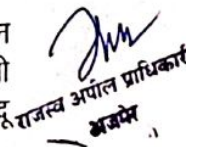 न
ी
राजस्व अपील प्राधिकारी
अजमेर